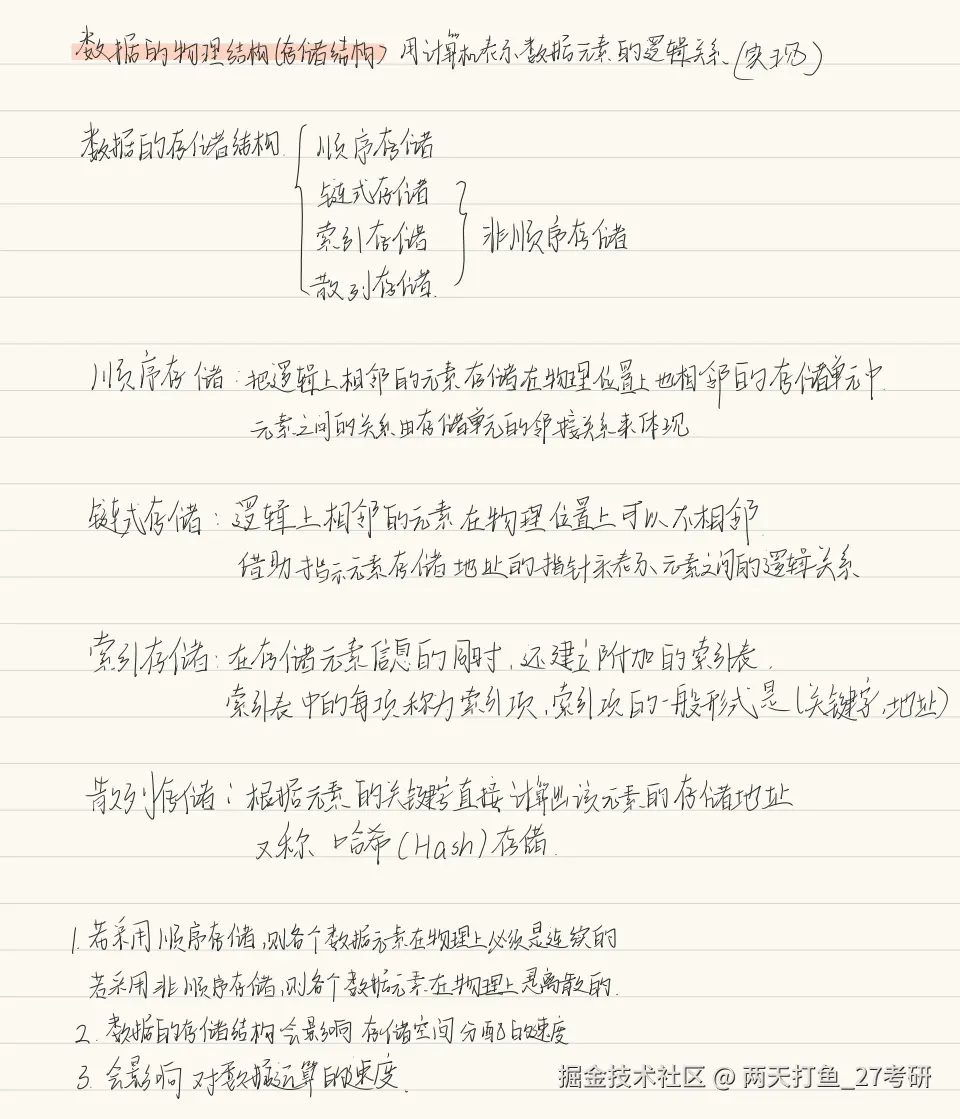 数据的物理结构(存储结构) 用计算机表示数据元素的逻辑关系 (实现)
数据的存储结构
顺序存储
链式存储
索引存储
散列存储.
非顺序存储
顺序存储:把逻辑上相邻的元素存储在物理位置上也相邻的存储单元中.
元素之间的关系由存储单元的邻接关系来体现
链式存储:逻辑上相邻的元素在物理位置上可以不相邻.
借助指示元素存储地址的指针来表示元素之间的逻辑关系
索引存储:在存储元素信息的同时,还建立附加的索引表.
索引表中的每项称为索引项,索引项的一般形式是(关键字,地址)
散列存储:根据元素的关键字直接计算出该元素的存储地址
又称 哈希(Hash)存储.
1. 若采用顺序存储,则各个数据元素在物理上必须是连续的
若采用非顺序存储,则各个数据元素在物理上是离散的.
2. 数据的存储结构会影响存储空间分配的速度
3. 会影响对数据运算的速度.
掘金技术社区 @ 两天打鱼_27考研